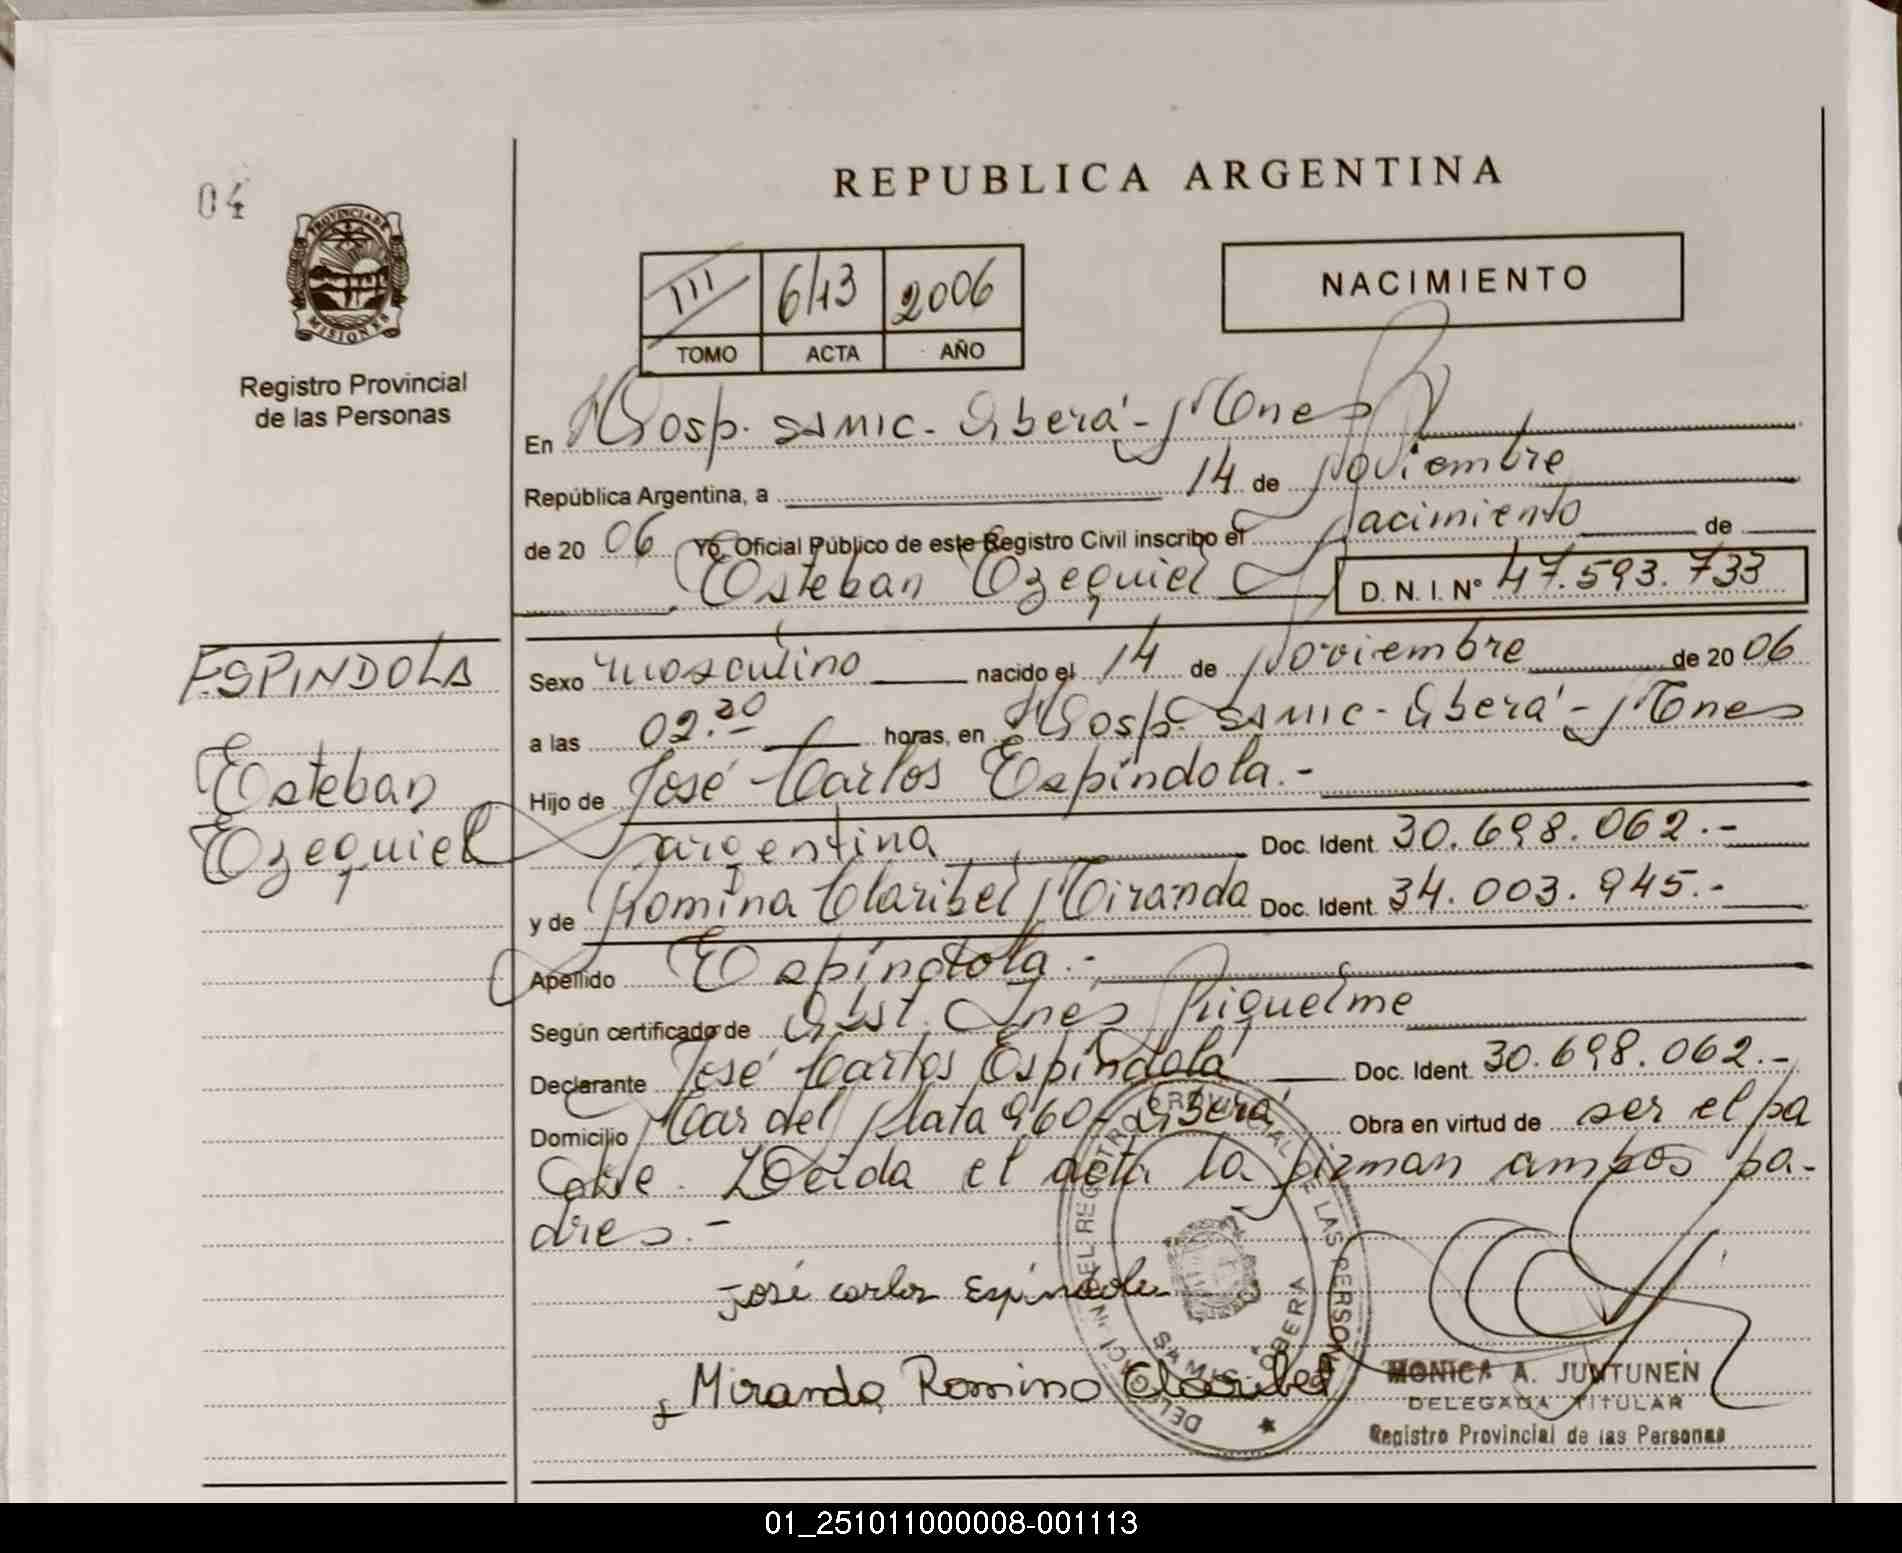 04
REPUBLICA ARGENTINA
PROVINCIA DE
MISIONES
Registro Provincial
de las Personas
III 613 2006
TOMO ACTA AÑO
NACIMIENTO
En Hosp. SAMIC - Oberá - Mnes
República Argentina, a 14 de Noviembre
de 2006 Yo, Oficial Público de este Registro Civil inscribo el Nacimiento de
Esteban Ezequiel D.N.I. Nº 47.593.733
ESPINDOLA
Esteban
Ezequiel
Sexo masculino nacido el 14 de Noviembre de 2006
a las 02.20 horas, en Hosp. SAMIC - Oberá - Mnes
Hijo de José Carlos Espíndola.-
argentina Doc. Ident. 30.698.062.-
y de Romina Claribel Miranda Doc. Ident. 34.003.945.-
Apellido Espíndola.-
Según certificado de Obst. Ines Riquelme
Declarante José Carlos Espíndola Doc. Ident. 30.698.062.-
Domicilio Mar del Plata 960 - Oberá Obra en virtud de ser el pa
dre. Leída el acta la firman ambos pa-
dres.-
José Carlos Espíndola
Miranda Romina Claribel
DEL REGISTRO PROVINCIAL DE LAS PERSONAS
SAMIC - OBERA
MONICA A. JUNTUNEN
DELEGADA TITULAR
Registro Provincial de las Personas
01_251011000008-001113